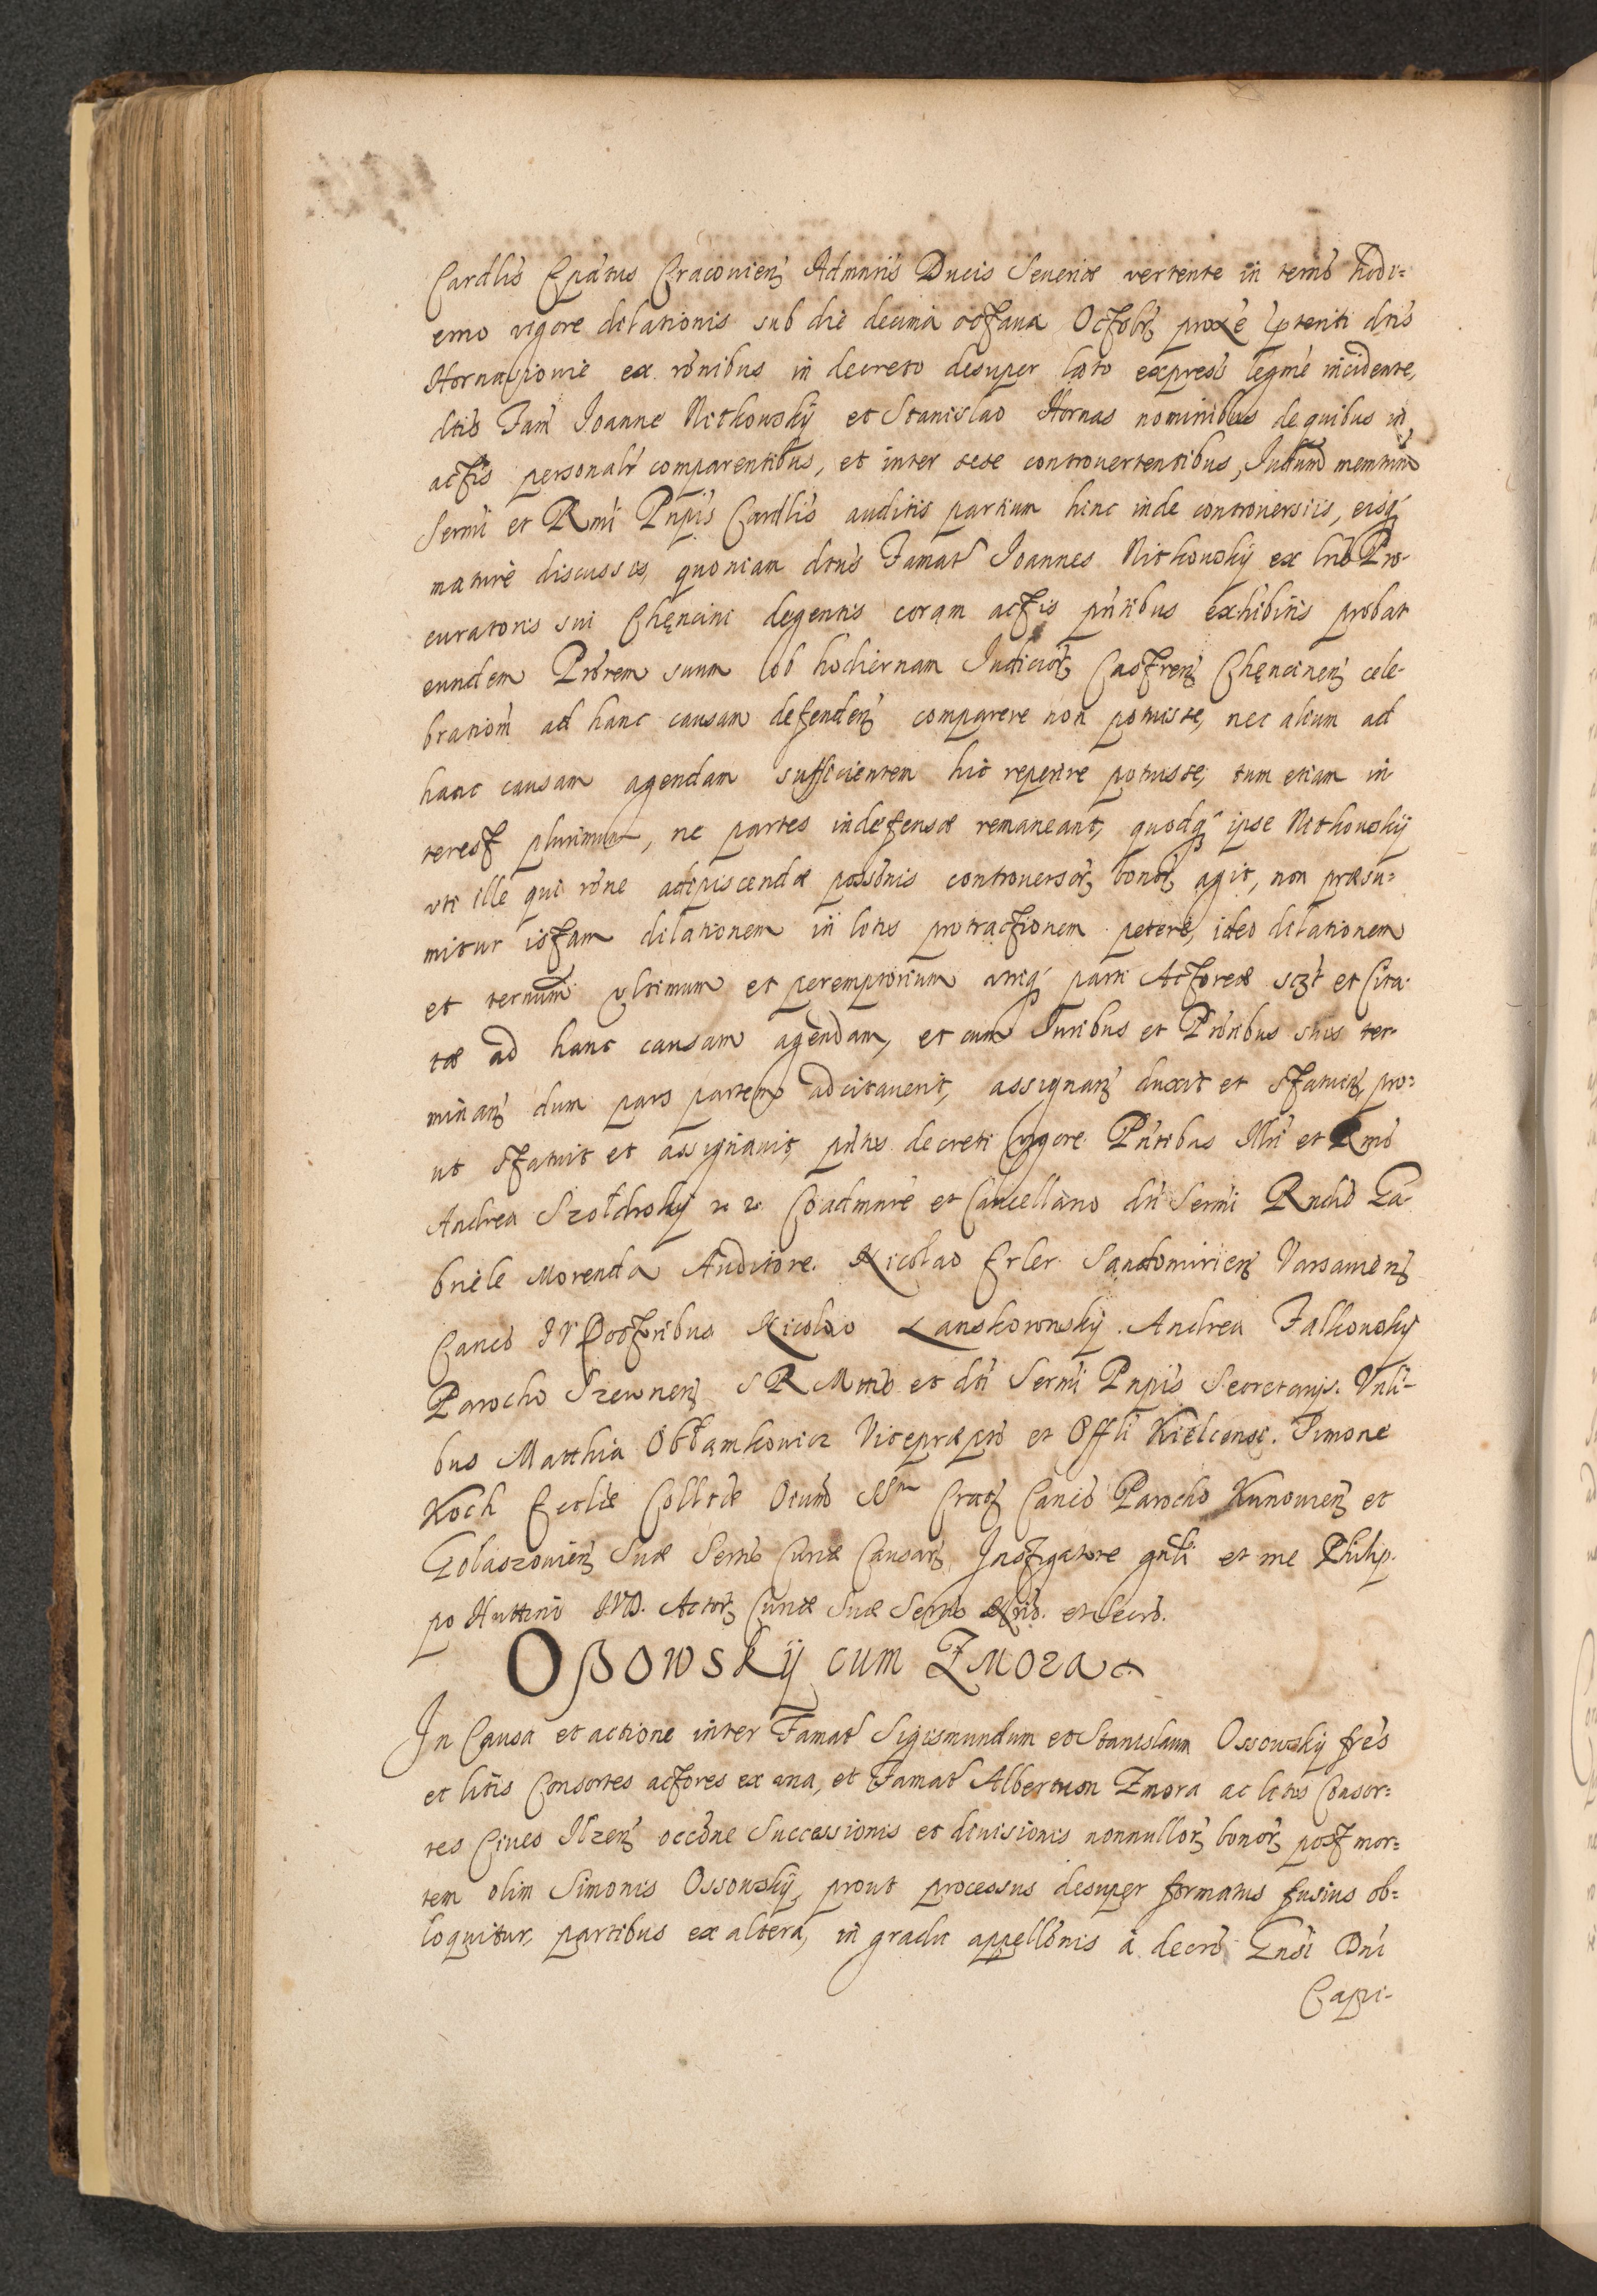 Cardlis Epatus Cracouien Admnris Ducis Seueriæ vertente in termo hodi-
erno vigore dilationis sub die decima octaua Octobr proxe pteriti dtis
Hornasiouie ex ronibus in decreto desuper lato expressis legme incidente,
dtis Fam Ioanne Nitkowskÿ et Stanislao Hornas nominibus de quibus in
actis personalr comparentibus, et inter sese controuertentibus, Iudicium memtum
Sermi et Rmi Pnpis Cardlis auditis partium hinc inde controuersiis, eisq
mature discussis, quoniam dtus Famat Ioannes Nitkowskÿ ex lris Pro-
curatoris sui Chęncini degentis coram actis pntibus exhibitis probat
eundem Prorem suum ob hodiernam Iudicior Castren Chęncinen cele-
brationem ad hanc causam defenden comparere non potuisse, nec alium ad
hanc causam agendam sufficientem hic reperire potuisse, tum etiam in-
terest plurimum, ne partes indefensæ remaneant, quodq ipse Nitkowskÿ
vti ille qui rone adipiscendæ possonis controuersor bonor agit, non præsu-
mitur istam dilationem in lotis protractionem petere, ideo dilationem
et terminum vltimum et peremptorium vtriq parti Actoreæ sczt et Cita-
tæ ad hanc causam agendam, et cum Iuribus et Proribus suis ter-
minan dum pars partem adcitauerit, assignan duxit et statuen, pro-
ut statuit et assignauit, pntis decreti vigore. Pntibus Illri et Rmo
Andrea Szołdrskÿ Coadmnre et Cancellario dti Sermi Rndis Ga-
briele Morenda Auditore. Nicolao Erler Sandomirien Varsauien
Canco IV Doctoribus Nicolao Lanskoronskÿ. Andrea Falkowskÿ
Parocho Szewnen S R Mttis et dti Sermi Pnpis Secretarijs. Vnli-
bus Matthia Obłamkowicz Vicepræpto et Offli Kielcensi. Simone
Koch Ecclæ Colltæ Oium Crac Canco Parocho Kunouien et
Golaszouien Suæ Sertis Curiæ Causar Instigatore gnli et me Philip-
po Huttini IVD. Actor Curiæ Suæ Sertis et Secro.
Oßowskÿ cum Zmora
In Causa et actione inter Famat Sigismundum et Stanislaum Ossowskÿ fres
et litis Consortes actores ex una, et Famat Albertum Zmora ac litis Consor-
tes Ciues Ilzen occone Successionis et diuisionis nonnullor bonor post mor-
tem olim Simonis Ossowskÿ, prout processus desuper formatus fusius ob-
loquitur, partibus ex altera, in gradu appellonis a decro Gnsi Dni
Capi-